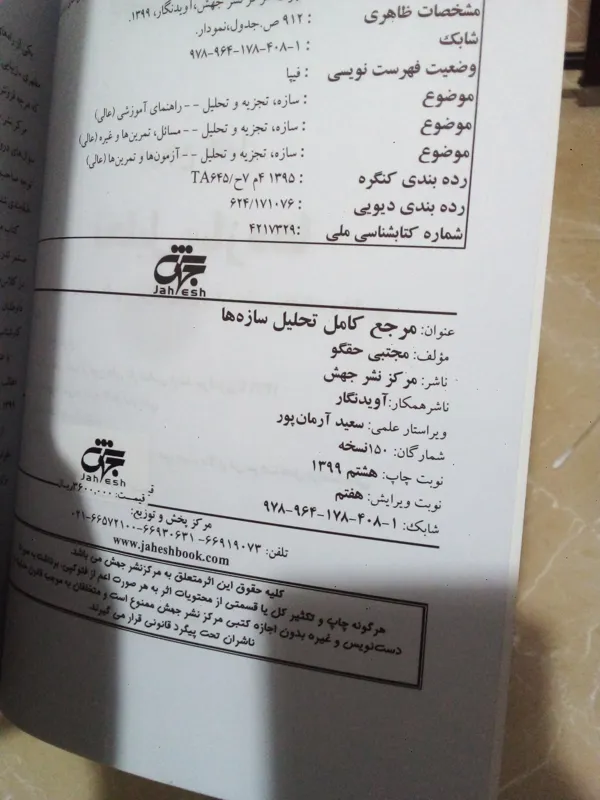 مرکز نشر جهش، آویدنگار، ۱۳۹۹.
مشخصات ظاهری : ۹۱۲ ص.جدول،نمودار.
شابک : ۹۷۸-۹۶۴-۱۷۸-۴۰۸-۱
وضعیت فهرست نویسی : فیپا
موضوع : سازه، تجزیه و تحلیل -- راهنمای آموزشی (عالی)
موضوع : سازه، تجزیه و تحلیل -- مسائل، تمرین‌ها و غیره (عالی)
موضوع : سازه، تجزیه و تحلیل -- آزمون‌ها و تمرین‌ها (عالی)
رده بندی کنگره : ۱۳۹۵ ۴م ۷ح/TA۶۴۵
رده بندی دیویی : ۶۲۴/۱۷۱۰۷۶
شماره کتابشناسی ملی : ۴۲۱۷۳۲۹
جهش
Jahesh
عنوان: مرجع کامل تحلیل سازه‌ها
مؤلف: مجتبی حقگو
ناشر: مرکز نشر جهش
ناشرهمکار:آویدنگار
ویراستار علمی: سعید آرمان‌پور
شمارگان: ۱۵۰نسخه
نوبت چاپ: هشتم ۱۳۹۹
نوبت ویرایش: هفتم
شابک: ۹۷۸-۹۶۴-۱۷۸-۴۰۸-۱
جهش
Jahesh
قیمت: ۳۶۰۰,۰۰۰ریال
مرکز پخش و توزیع:
تلفن: ۶۶۹۱۹۰۷۳ -۶۶۹۳۰۶۳۱ -۰۲۱-۶۶۵۷۲۱۰۰
www.jaheshbook.com
کلیه حقوق این اثر متعلق به مرکزنشر جهش می باشد.
هرگونه چاپ و تکثیر کل یا قسمتی از محتویات اثر به هر صورت اعم از فتوکپی، برداشت به صورت
دست‌نویس و غیره بدون اجازه کتبی مرکز نشر جهش ممنوع است و متخلفان به موجب قانون حمایت
ناشران تحت پیگرد قانونی قرار می گیرند.